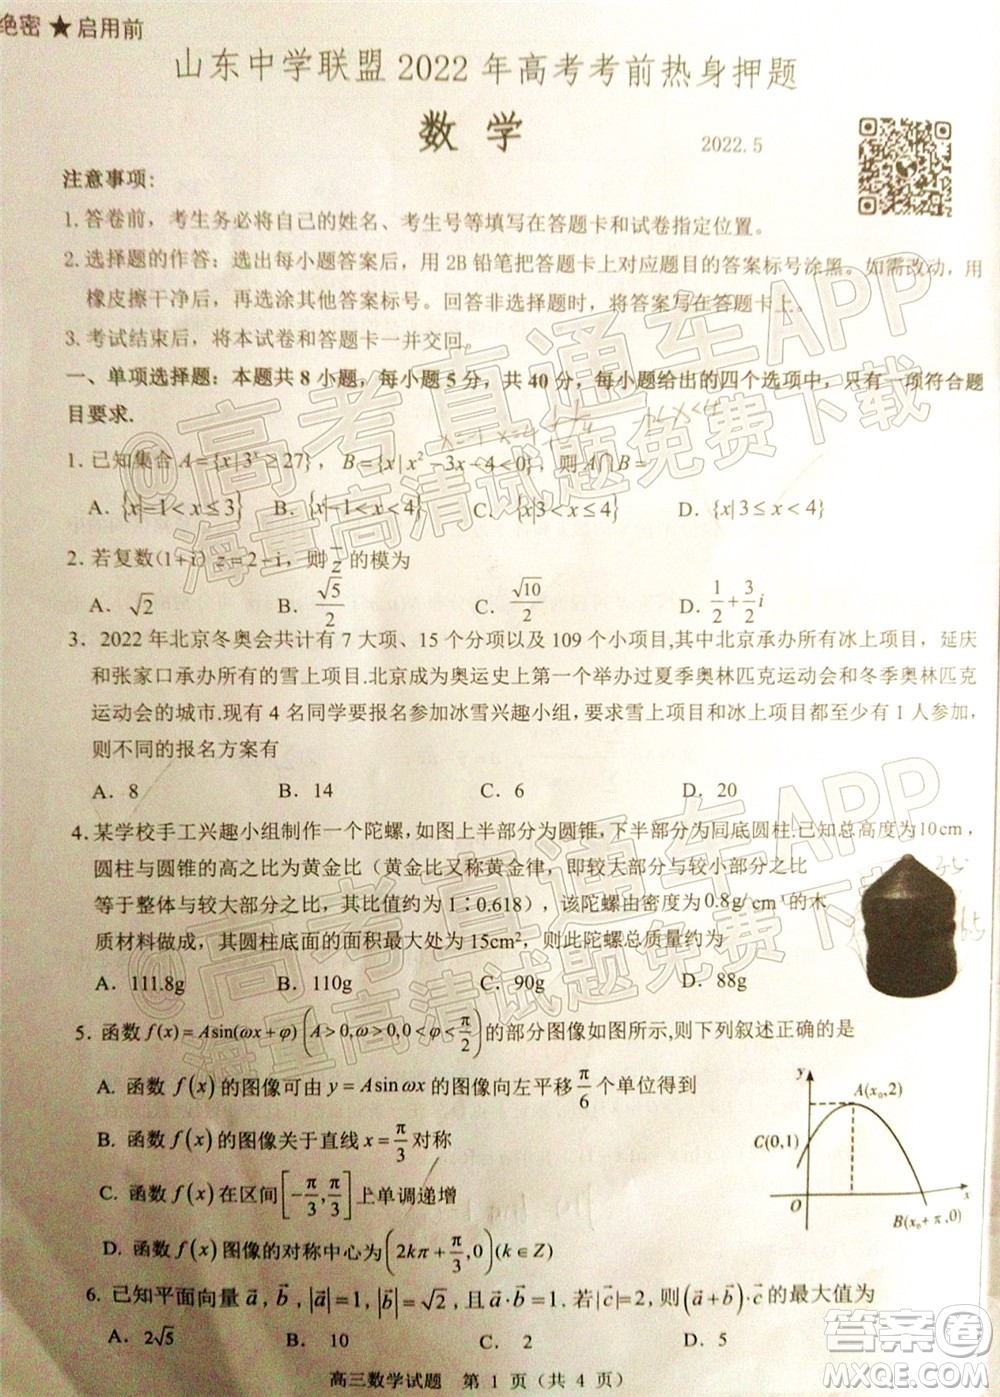 绝密★启用前
山东中学联盟 2022 年高考考前热身押题
数 学
2022.5
注意事项:
1. 答卷前，考生务必将自己的姓名、考生号等填写在答题卡和试卷指定位置。
2. 选择题的作答：选出每小题答案后，用 2B 铅笔把答题卡上对应题目的答案标号涂黑。如需改动，用
橡皮擦干净后，再选涂其他答案标号。回答非选择题时，将答案写在答题卡上。
3. 考试结束后，将本试卷和答题卡一并交回。
一、单项选择题：本题共 8 小题，每小题 5 分，共 40 分，每小题给出的四个选项中，只有一项符合题
目要求.
1. 已知集合 A={x|3ˣ≥27}，B={x|x²-3x-4<0}，则 A∩B=
A. {x|-1<x≤3} B. {x|-1<x<4} C. {x|3<x<4} D. {x|3≤x<4}
2. 若复数(1+i) z=2-i，则 z̄ 的模为
A. √2 B. √5/2 C. √10/2 D. 1/2+3/2 i
3. 2022 年北京冬奥会共计有 7 大项、15 个分项以及 109 个小项目,其中北京承办所有冰上项目，延庆
和张家口承办所有的雪上项目.北京成为奥运史上第一个举办过夏季奥林匹克运动会和冬季奥林匹克
运动会的城市.现有 4 名同学要报名参加冰雪兴趣小组,要求雪上项目和冰上项目都至少有 1 人参加，
则不同的报名方案有
A. 8 B. 14 C. 6 D. 20
4. 某学校手工兴趣小组制作一个陀螺,如图上半部分为圆锥，下半部分为同底圆柱.已知总高度为10cm，
圆柱与圆锥的高之比为黄金比（黄金比又称黄金律，即较大部分与较小部分之比
等于整体与较大部分之比，其比值约为 1∶0.618），该陀螺由密度为0.8g/cm³的木
质材料做成，其圆柱底面的面积最大处为 15cm²，则此陀螺总质量约为
A. 111.8g B. 110g C. 90g D. 88g
5. 函数 f(x)=Asin(ωx+φ)(A>0,ω>0,0<φ<π/2)的部分图像如图所示,则下列叙述正确的是
A. 函数 f(x) 的图像可由 y=Asinωx 的图像向左平移 π/6 个单位得到
B. 函数 f(x) 的图像关于直线 x=π/3 对称
C. 函数 f(x) 在区间 [-π/3, π/3] 上单调递增
D. 函数 f(x) 图像的对称中心为 (2kπ+π/3,0)(k∈Z)
y
A(x₀,2)
C(0,1)
O
x
B(x₀+π,0)
6. 已知平面向量 a⃗, b⃗, |a⃗|=1, |b⃗|=√2，且 a⃗·b⃗=1. 若|c⃗|=2,则(a⃗+b⃗)·c⃗ 的最大值为
A. 2√5 B. 10 C. 2 D. 5
高三数学试题 第 1 页（共 4 页）
@高考直通车APP
海量高清试题免费下载
@高考直通车APP
海量高清试题免费下载
答案圈
MXQE.COM